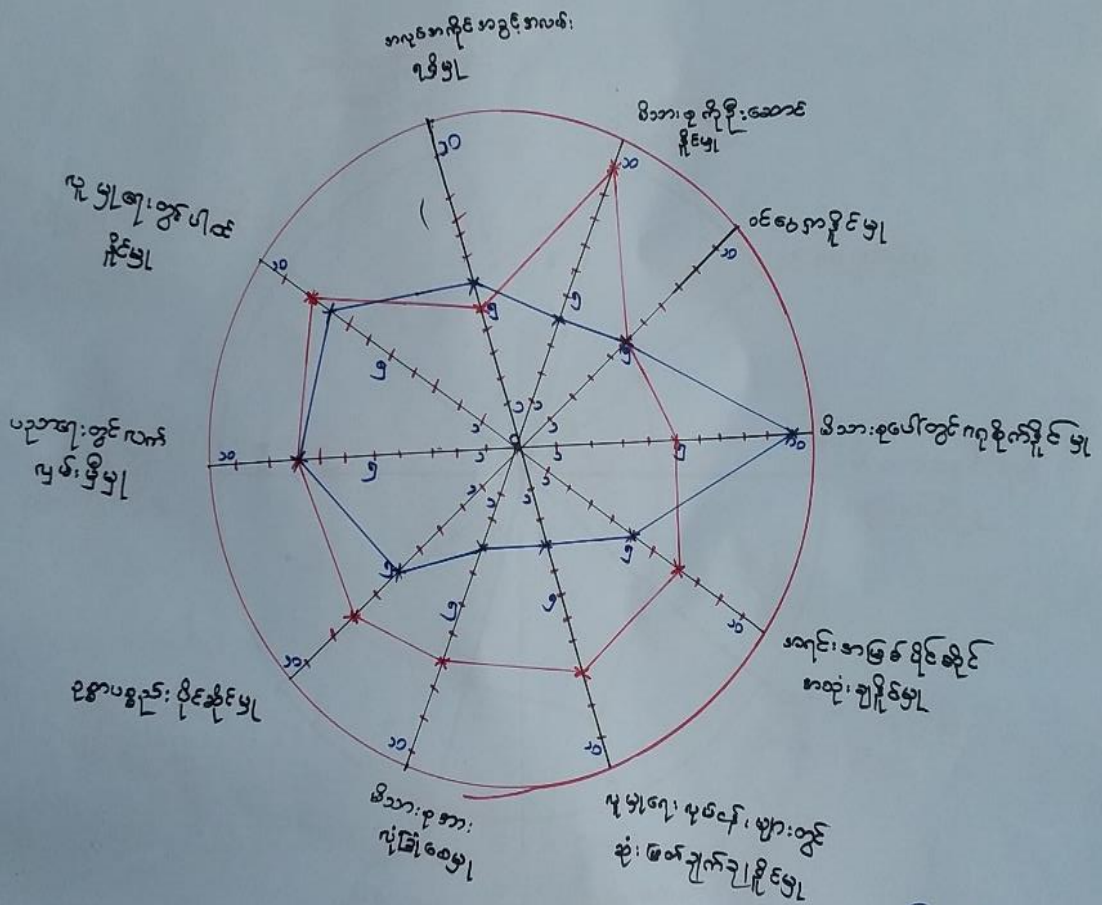 အလုပ်အကိုင်အခွင့်အလမ်း
ရရှိမှု
မိသားစုကိုဦးဆောင်
နိုင်မှု
ဝင်ငွေရှာနိုင်မှု
မိသားစုပေါ်တွင်ဂရုစိုက်နိုင်မှု
အရင်းအမြစ်ပိုင်ဆိုင်
အသုံးချနိုင်မှု
လူမှုရေးလုပ်ငန်းများတွင်
ဆုံးဖြတ်ချက်ချနိုင်မှု
မိသားစုအား
လုံခြုံစေမှု
ဥစ္စာပစ္စည်းပိုင်ဆိုင်မှု
ပညာရေးတွင်လက်
လှမ်းမှီမှု
လူမှုရေးတွင်ပါဝင်
နိုင်မှု
၁၀
၁၀
၁၀
၁၀
၁၀
၁၀
၁၀
၁၀
၁၀
၁၀
၅
၅
၅
၅
၅
၅
၅
၅
၅
၅
၁
၁
၁
၁
၁
၁
၁
၁
၀